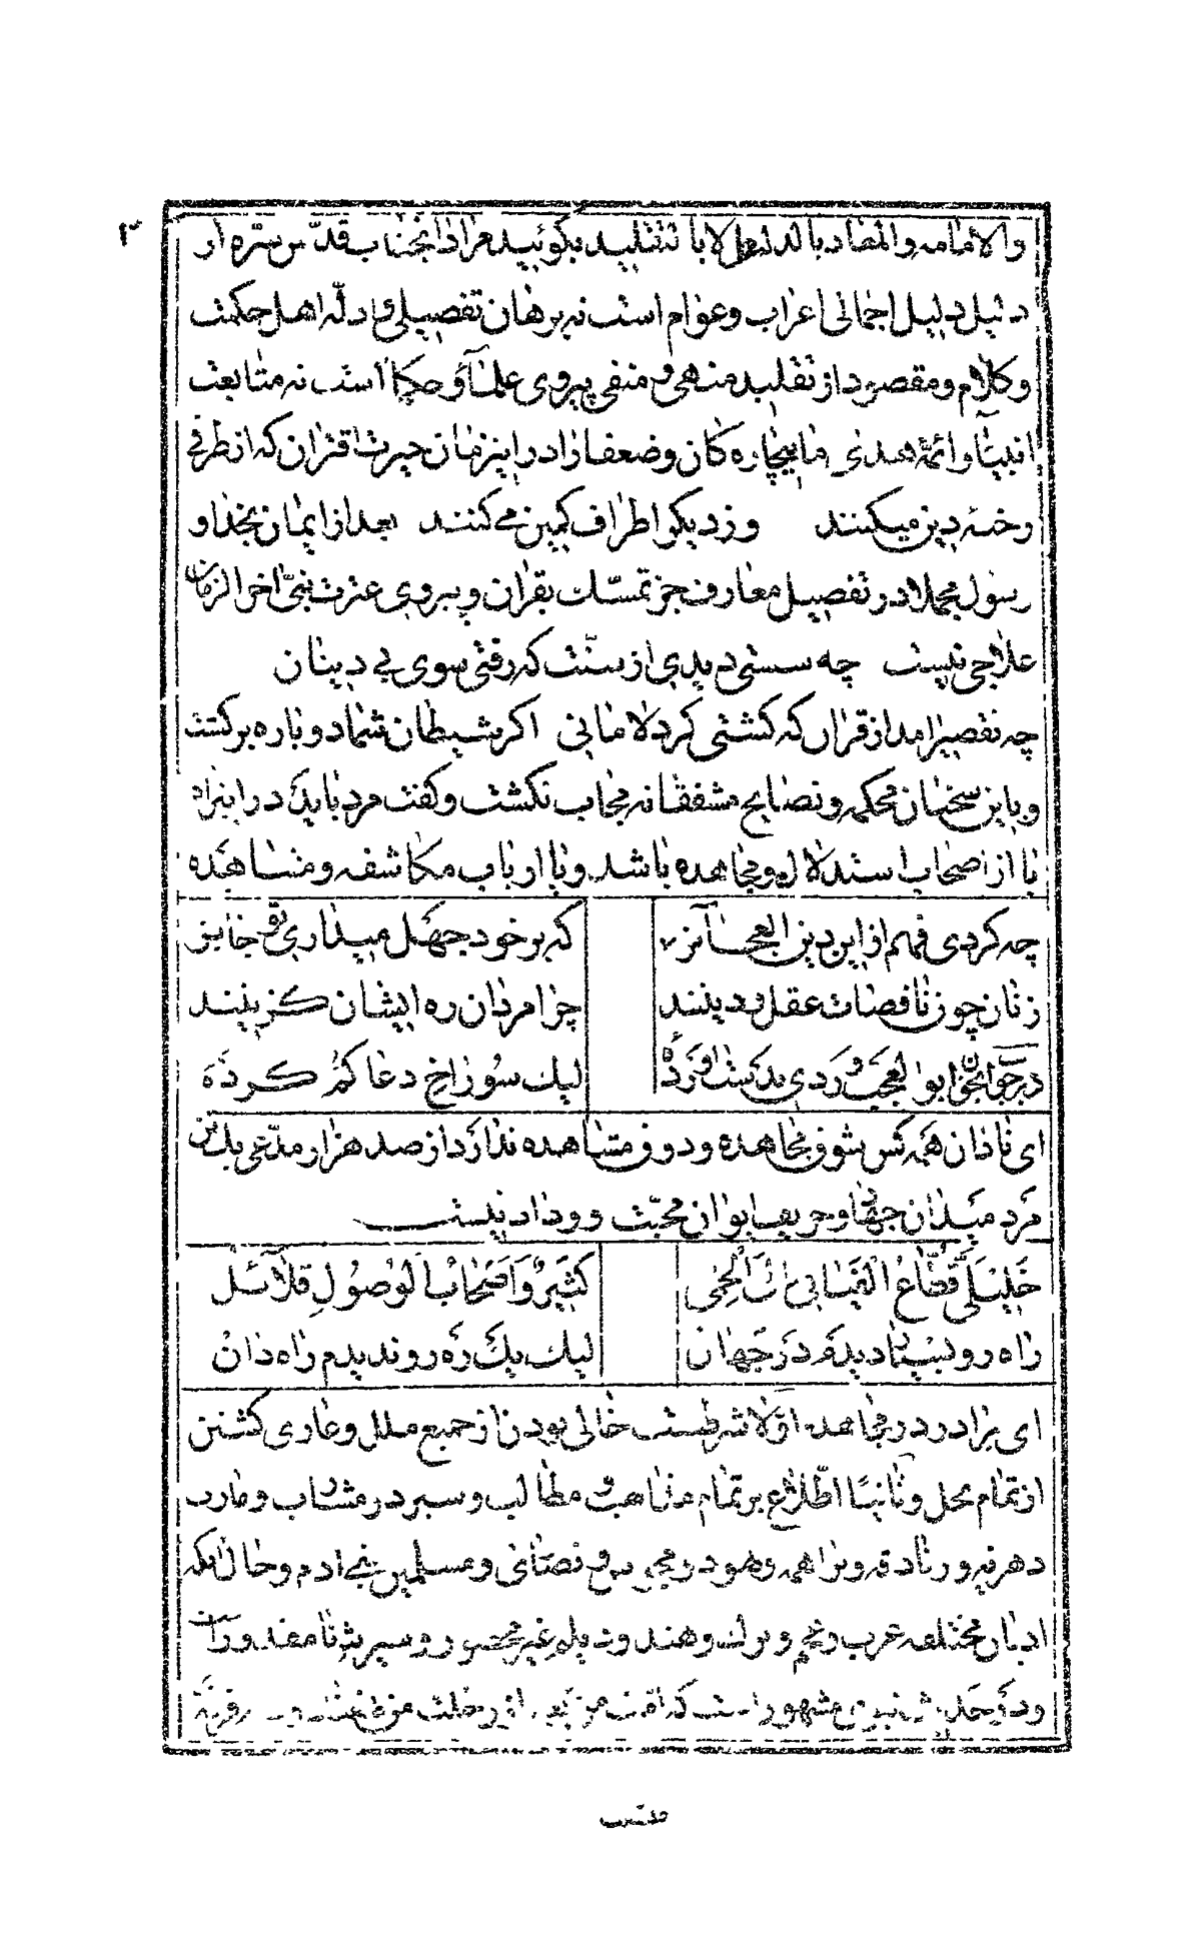 ۳
والامامه والمعاد بالدلیل لا بالتقلید بگوئید مراد انجناب قدّس سرّه از
دلیل دلیل اجمالی اعراب و عوام است نه برهان تفصیلی و ادلّه اهل حکمت
و کلام و مقصود از تقلید منهی و منفی پیروی علمآء و حکما است نه متابعت
انبیآء و ائمّهٔ هدی ما بیچاره کان و ضعفا را در این زمان حیرت اقتران که از طرفی
رخنه در دین میکنند و ز دیگر اطراف کمین می کنند بعد از ایمان بخدا و
رسول مجملا در تفصیل معارف جز تمسّک بقران و پیروی عترت نبیّ اخر الزمان
علاجی نیست چه سستی دیدی از سنّت که رفتی سوی بی دینان
چه تقصیر امد از قران که کشتی کرد لامانی اکر شیطان شما دوباره برکشت
و باین سخنان محکمه و نصایح مشفقانه مجاب نکشت و کفت مرد باید در این راه
یا از اصحاب استدلال و مجاهده باشد و یا ارباب مکاشفه و مشاهده
چه کردی فهم از این دین العجائز که بر خود جهل میداری تو جایز
زنان چون ناقصات عقل و دینند چرا مردان ره ایشان کزینند
در جوابنخ ابو العجب وردی بدست اورده لیک سوراخ دعا کم کرده
ای نادان همه کس شوق مجاهده و ذوق مشاهده ندارد از صد هزار مدّعی یک تن
مرد میدان جهاد و حریف ایوان محبّت و وداد نیست
خَلیلَیَّ قُطّاعُ الفَیافی اِلَی الحِمی کَثیرٌ وَاَصحابُ الوُصُولِ قَلائِلُ
راه رو بسیار دیدم در جهان لیک یک ره رو ندیدم راه دان
ای برادر در مجاهده اوّلا شرطست خالی بودن از جمیع ملل و عاری کشتن
از تمام نحل و ثانیًا اطّلاع بر تمام مذاهب و مطالب و سیر در مشارب و مارب
دهریه و زنادقه و براهمه و هنود و مجوس و نصاری و مسلمین بنی ادم و حال انکه
ادیان مختلفه عرب و عجم و ترک و هند و غیر محصوره و سیرش نا مقدور
و در حدیث نبوی مشهور است که امّت من بعد از رحلت من فرقه